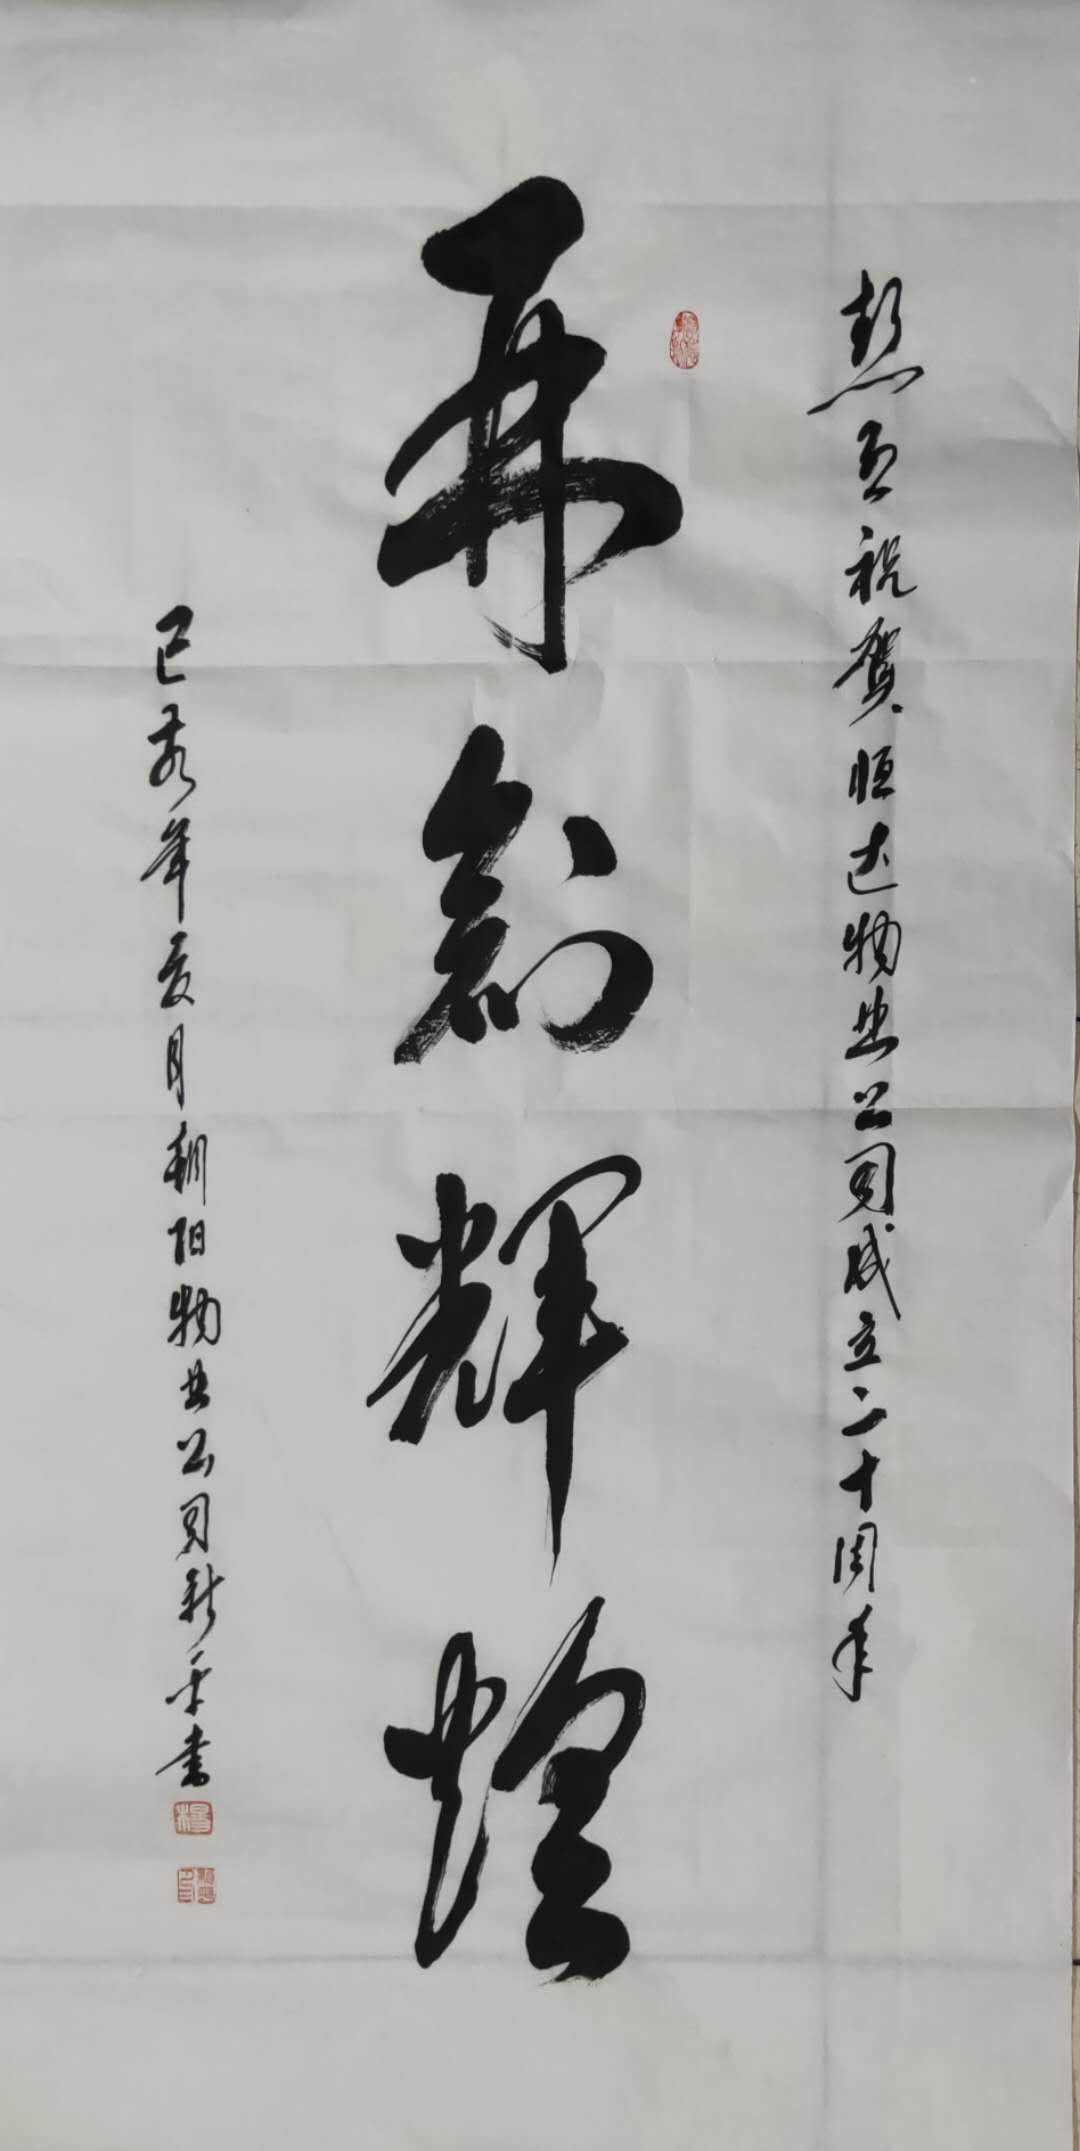 热烈祝贺恒达物业公司成立二十周年
再創輝煌
己亥年夏月朝阳物业公司新平书